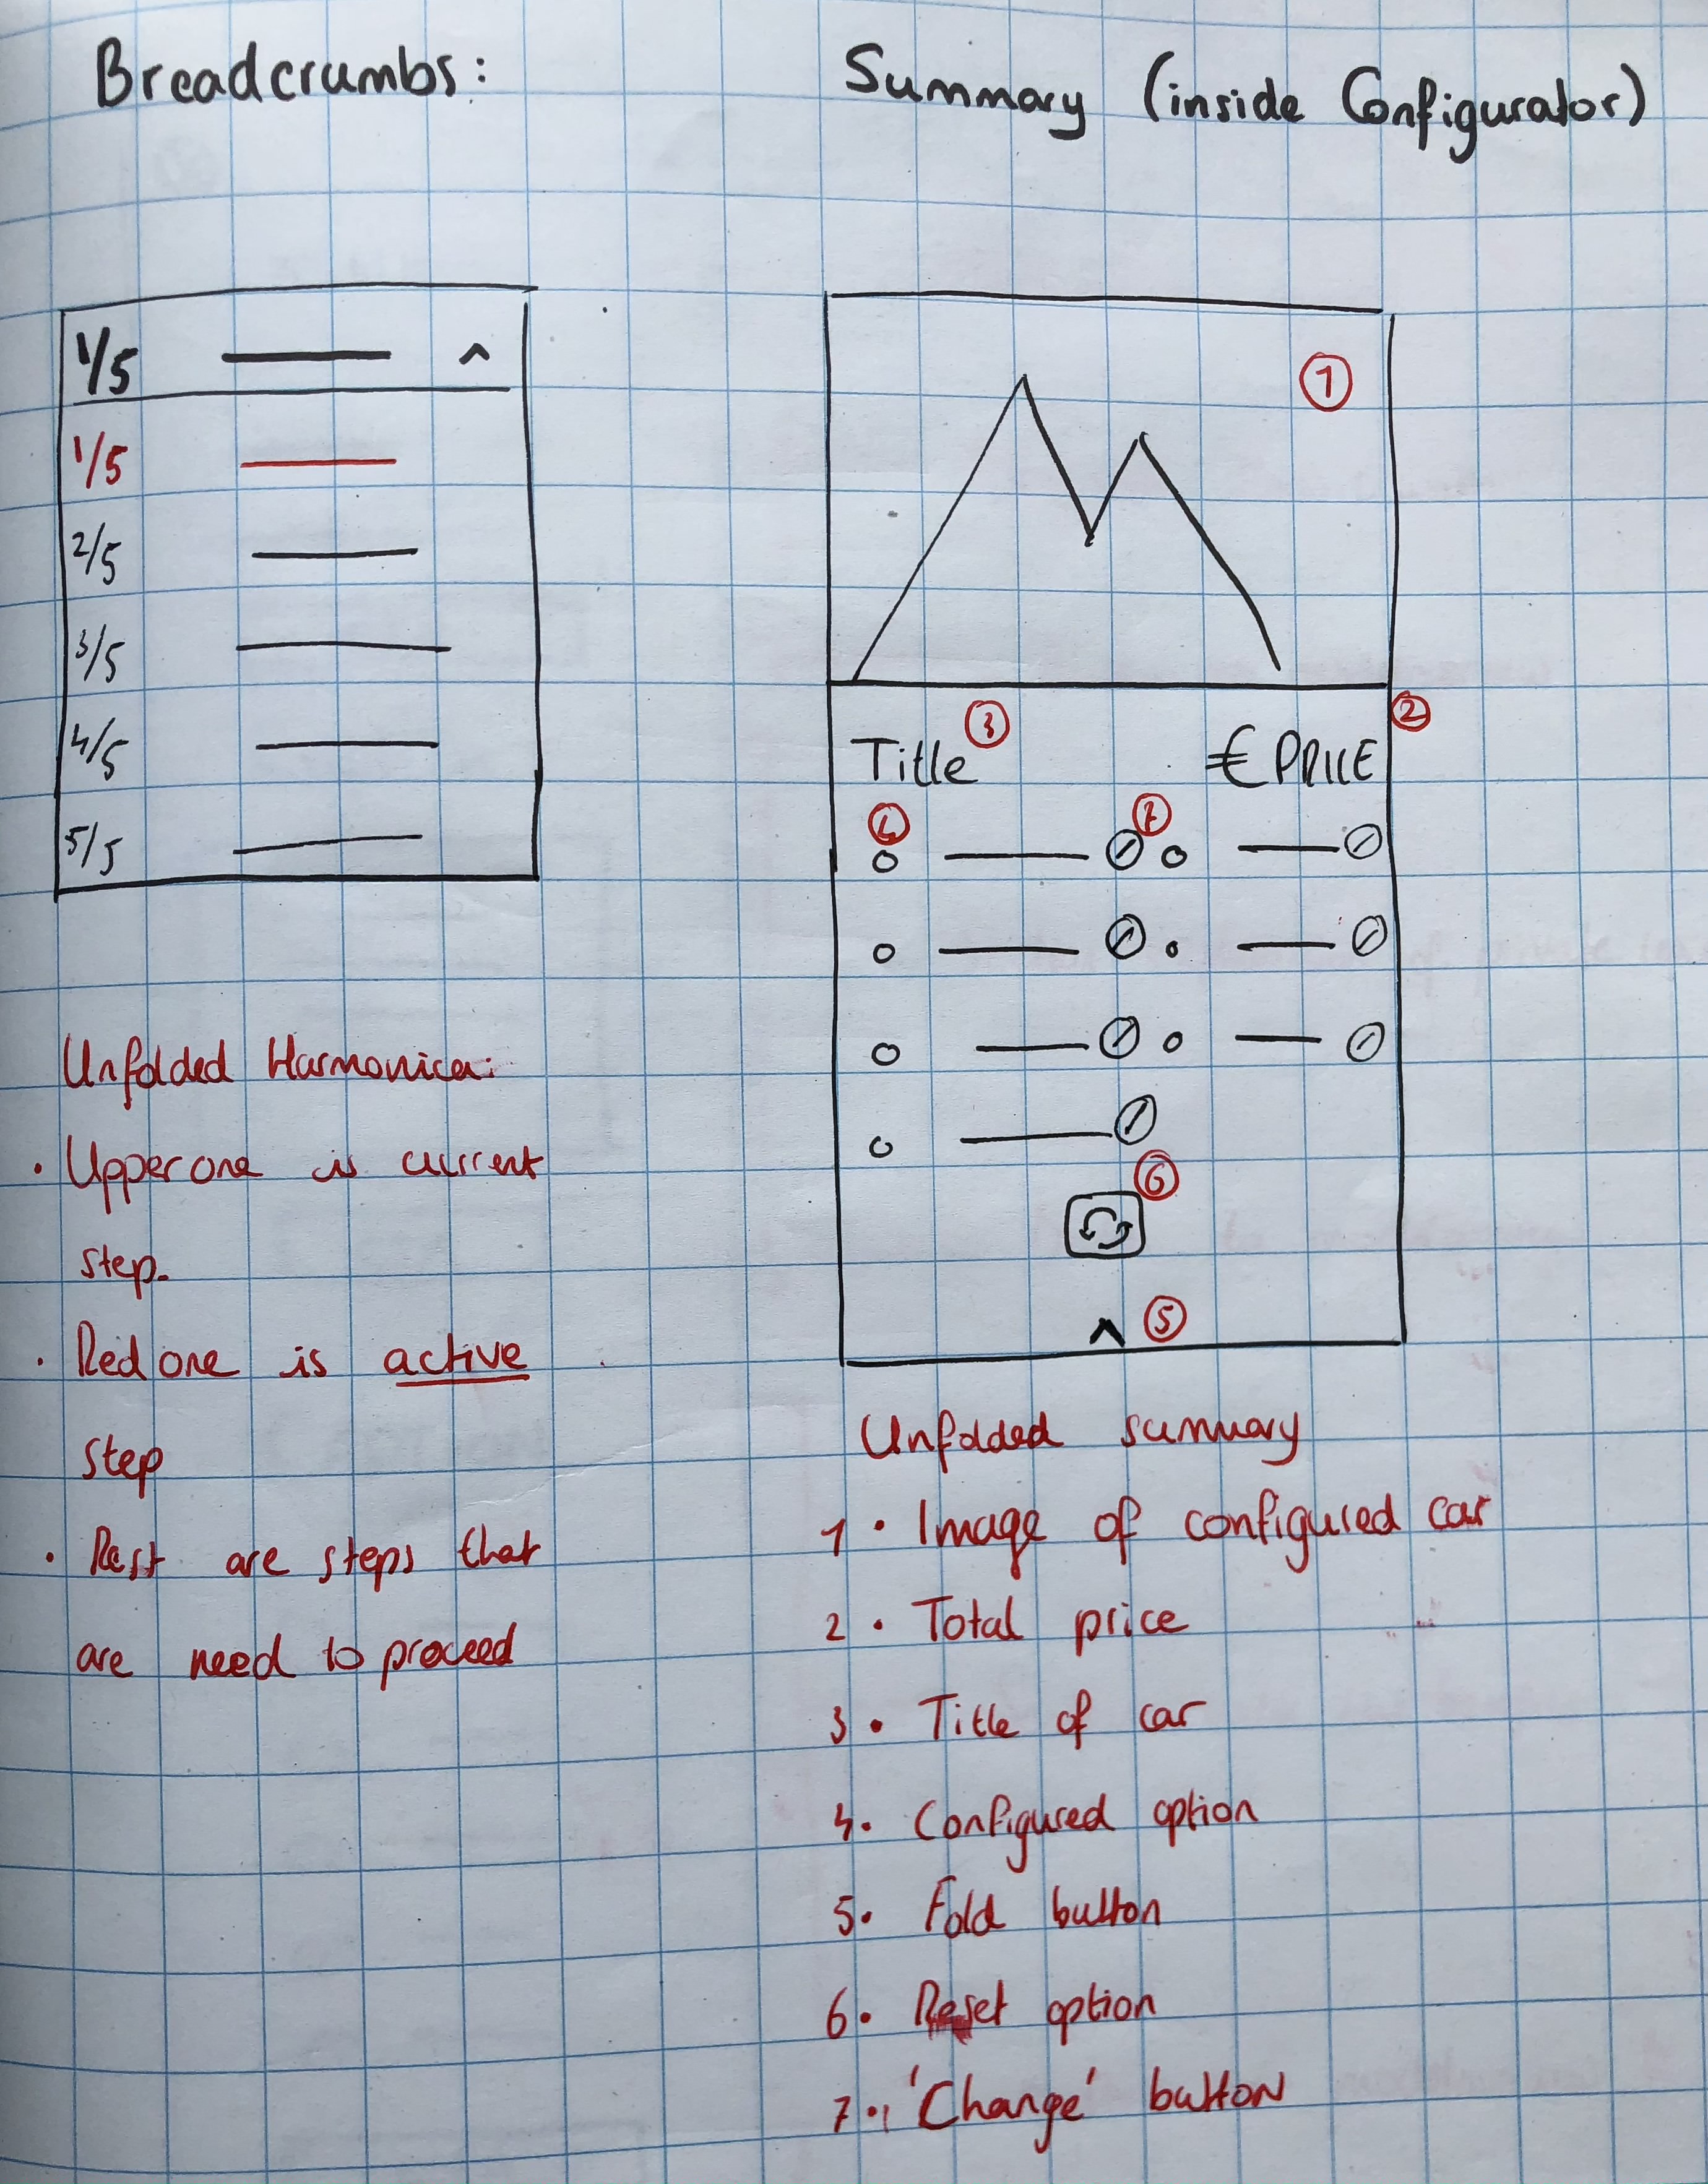 Breadcrumbs:
1/5
1/5
2/5
3/5
4/5
5/5
Unfolded Harmonica:
• Upper one is current
step.
• Red one is active
step
• Rest are steps that
are need to proceed
Summary (inside Configurator)
1
2
3
Title € PRICE
4 7
6
5
Unfolded summary
1 • Image of configured car
2 • Total price
3 • Title of car
4 • Configured option
5 • Fold button
6 • Reset option
7 • 'Change' button